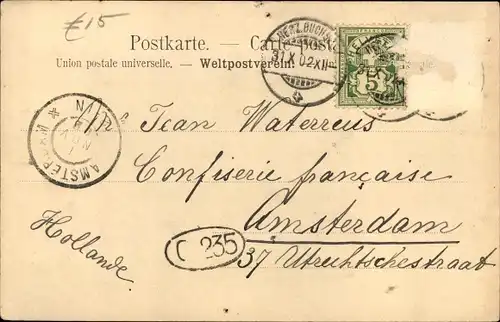 €15
Postkarte. — Carte postale
Union postale universelle. — Weltpostverein
HERZ.BUCHS
31.X.02.XII
HELVETIA
5
Mr Jean Waterreus
Confiserie française
Amsterdam
37 Utrechtschestraat
Hollande
AMSTERDAM
C 235